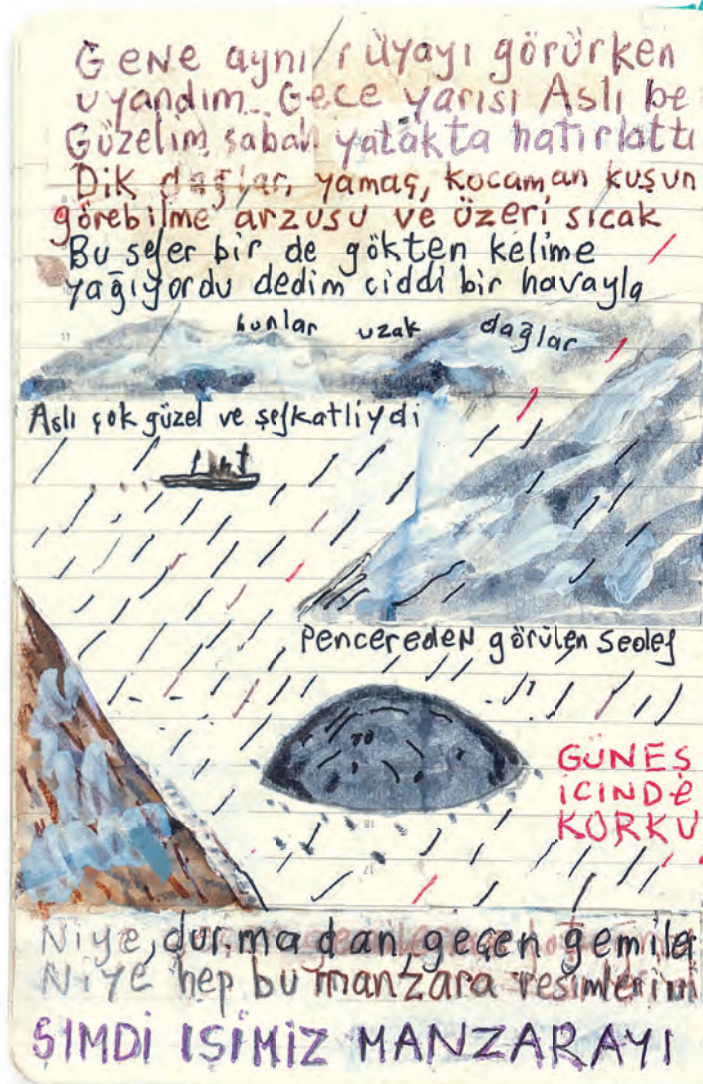 Gene aynı rüyayı görürken
uyandım.. Gece yarısı Aslı be
Güzelim sabah yatakta hatırlattı
Dik dağlar, yamaç, kocaman kuşun
görebilme arzusu ve üzeri sıcak
Bu sefer bir de gökten kelime
yağıyordu dedim ciddi bir havayla
bunlar uzak dağlar
Aslı çok güzel ve şefkatliydi
Pencereden görülen
GÜNEŞ
İCİNDE
KORKU
Niye, durmadan, geçen gemiler
Niye hep bu manzara resimlerini
ŞİMDİ İŞİMİZ MANZARAYI